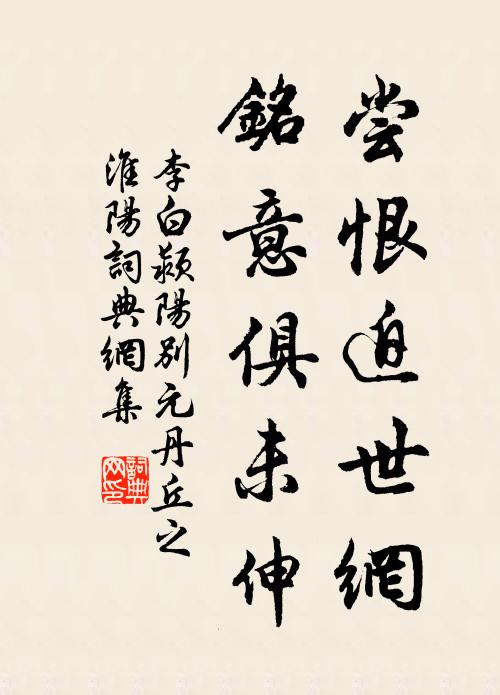 尝恨迫世網
銘意俱未伸
李白颍陽别元丹丘之
淮陽詞典網集
詞典
网印